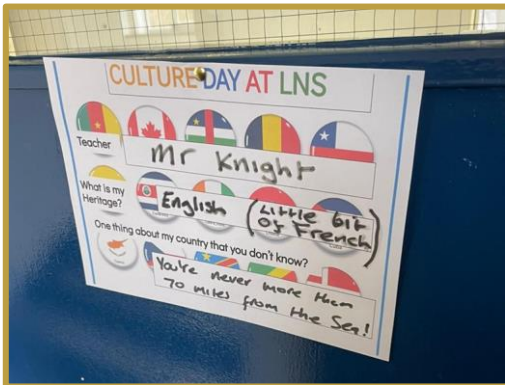 CULTURE DAY AT LNS
Teacher
Mr Knight
What is my
Heritage?
English
(Little bit
of French)
One thing about my country that you don't know?
You're never more then
70 miles from the Sea!